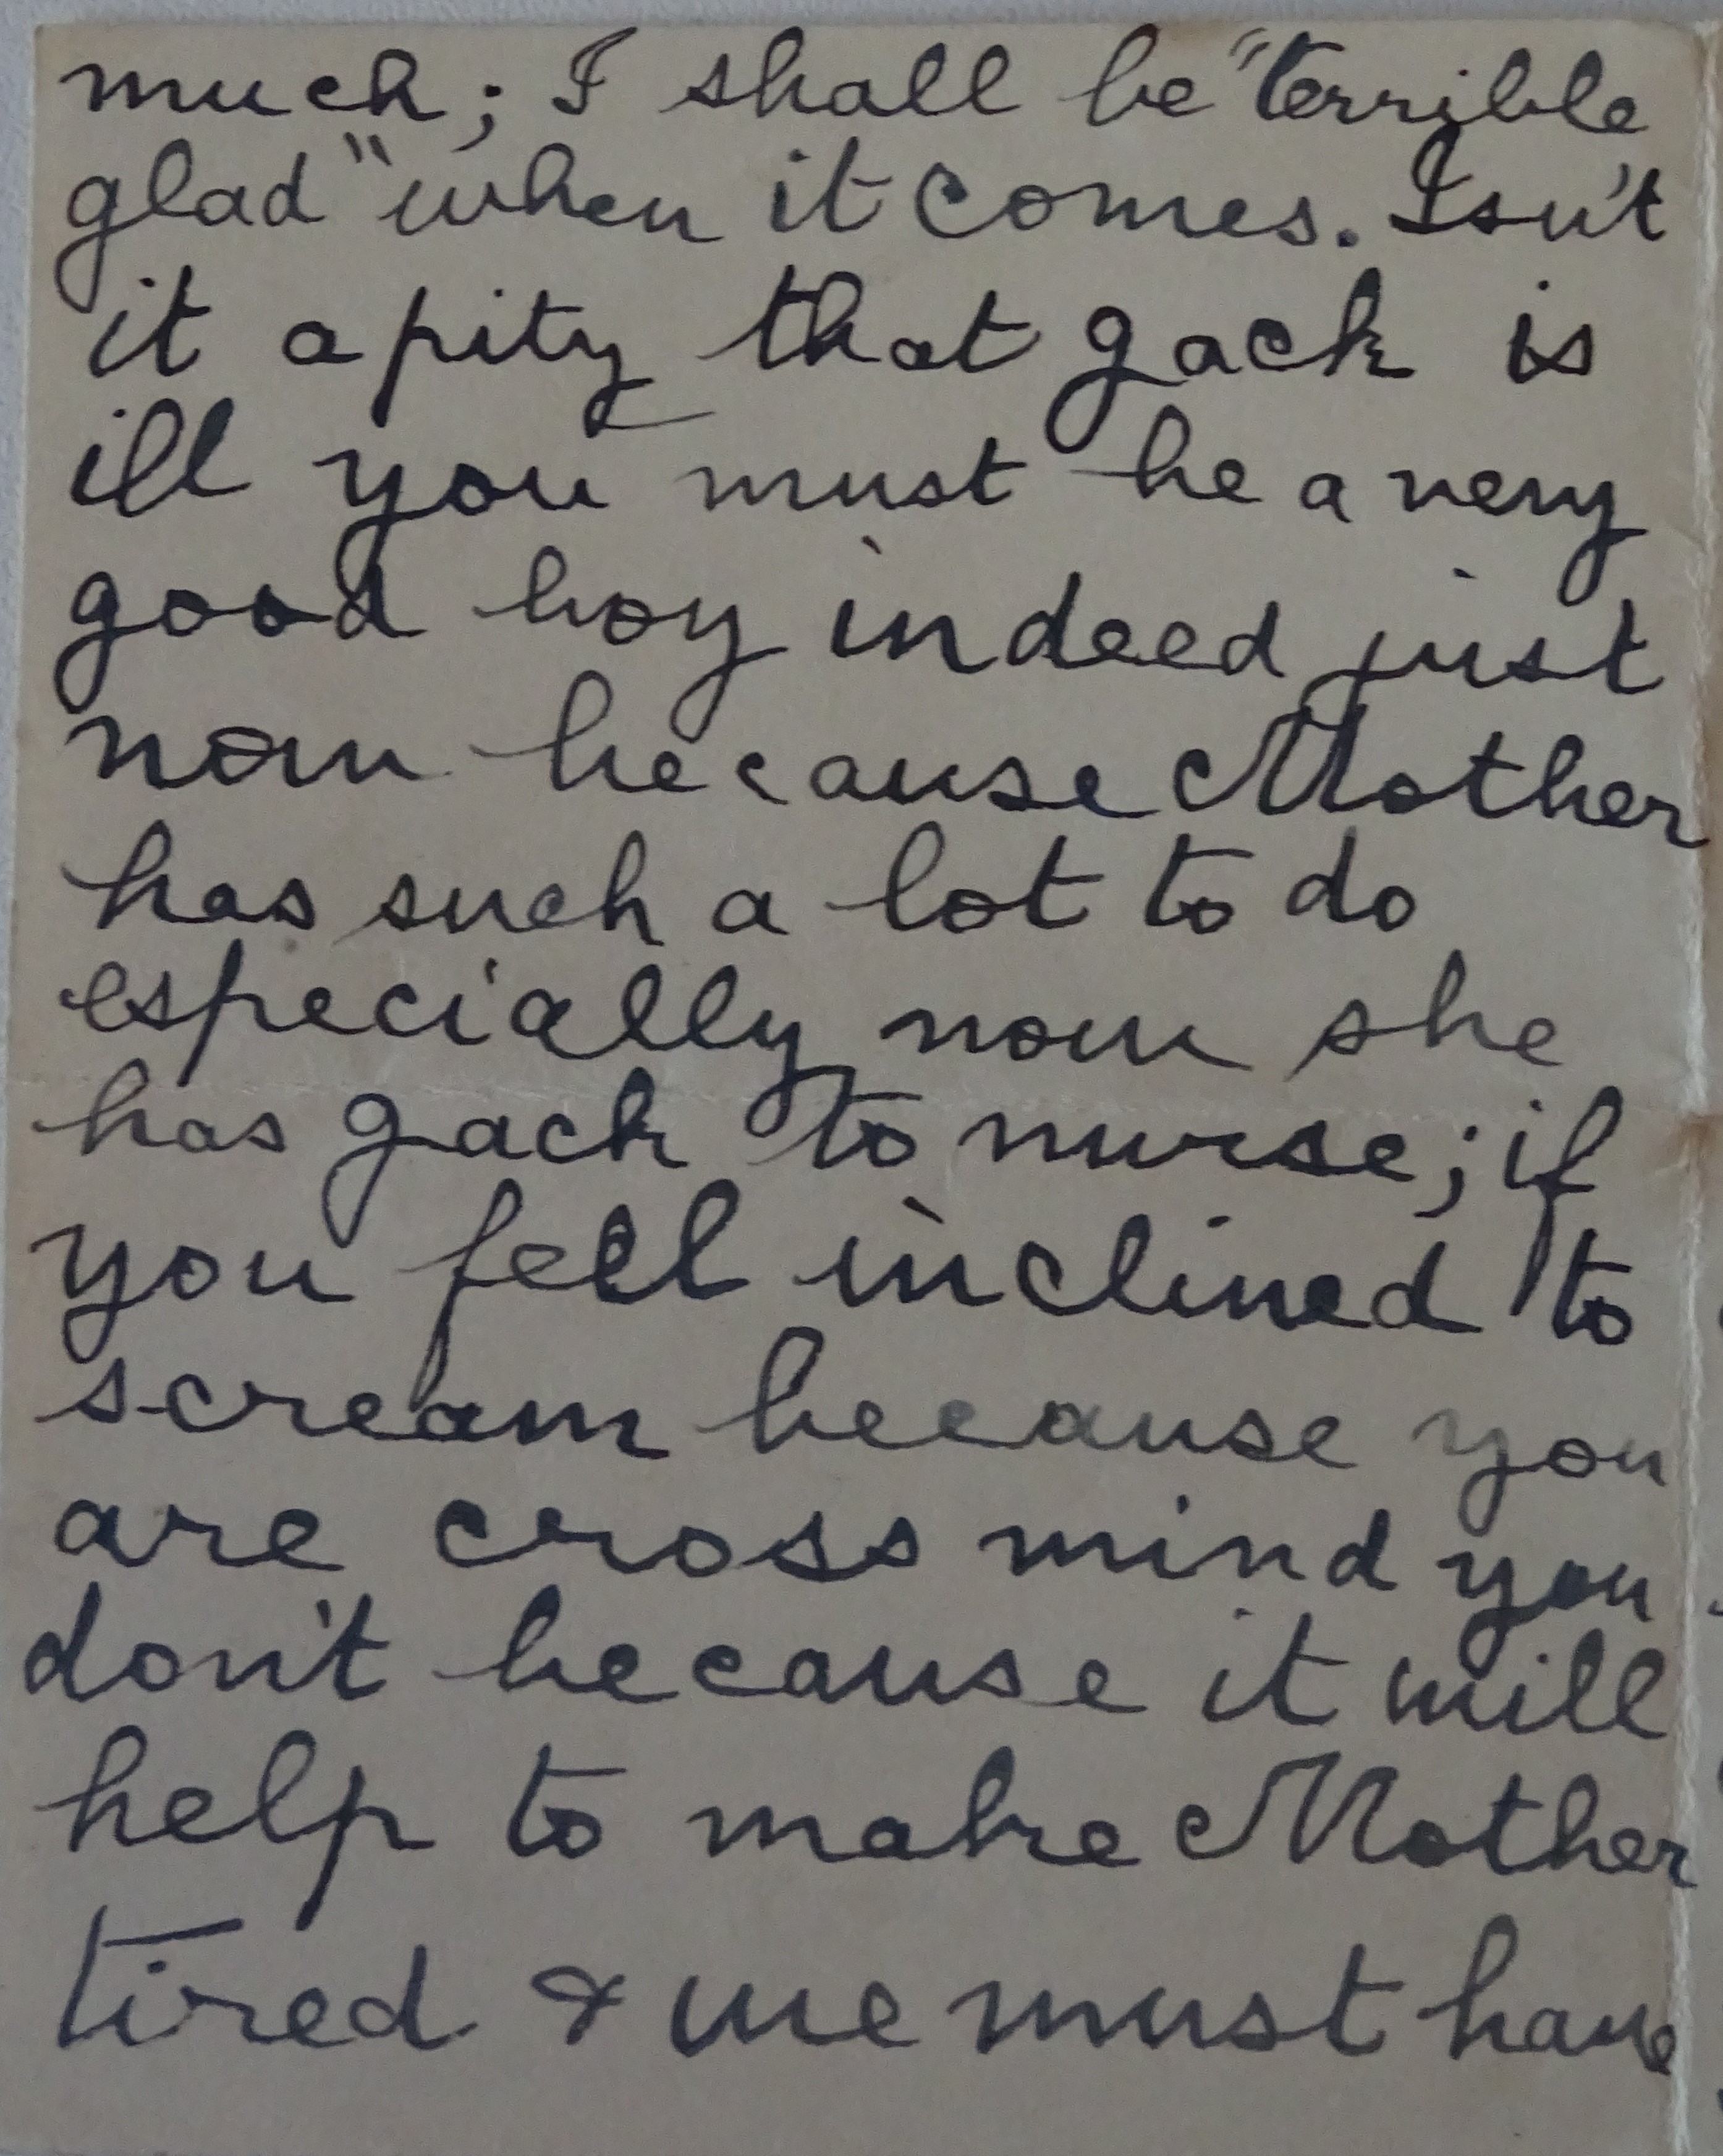 much; I shall be "terrible
glad" when it comes. Isn't
it a pity that Jack is
ill you must be a very
good boy indeed just
now because Mother
has such a lot to do
especially now she
has Jack to nurse; if
you feel inclined to
scream because you
are cross mind you
don't because it will
help to make Mother
tired & we must have